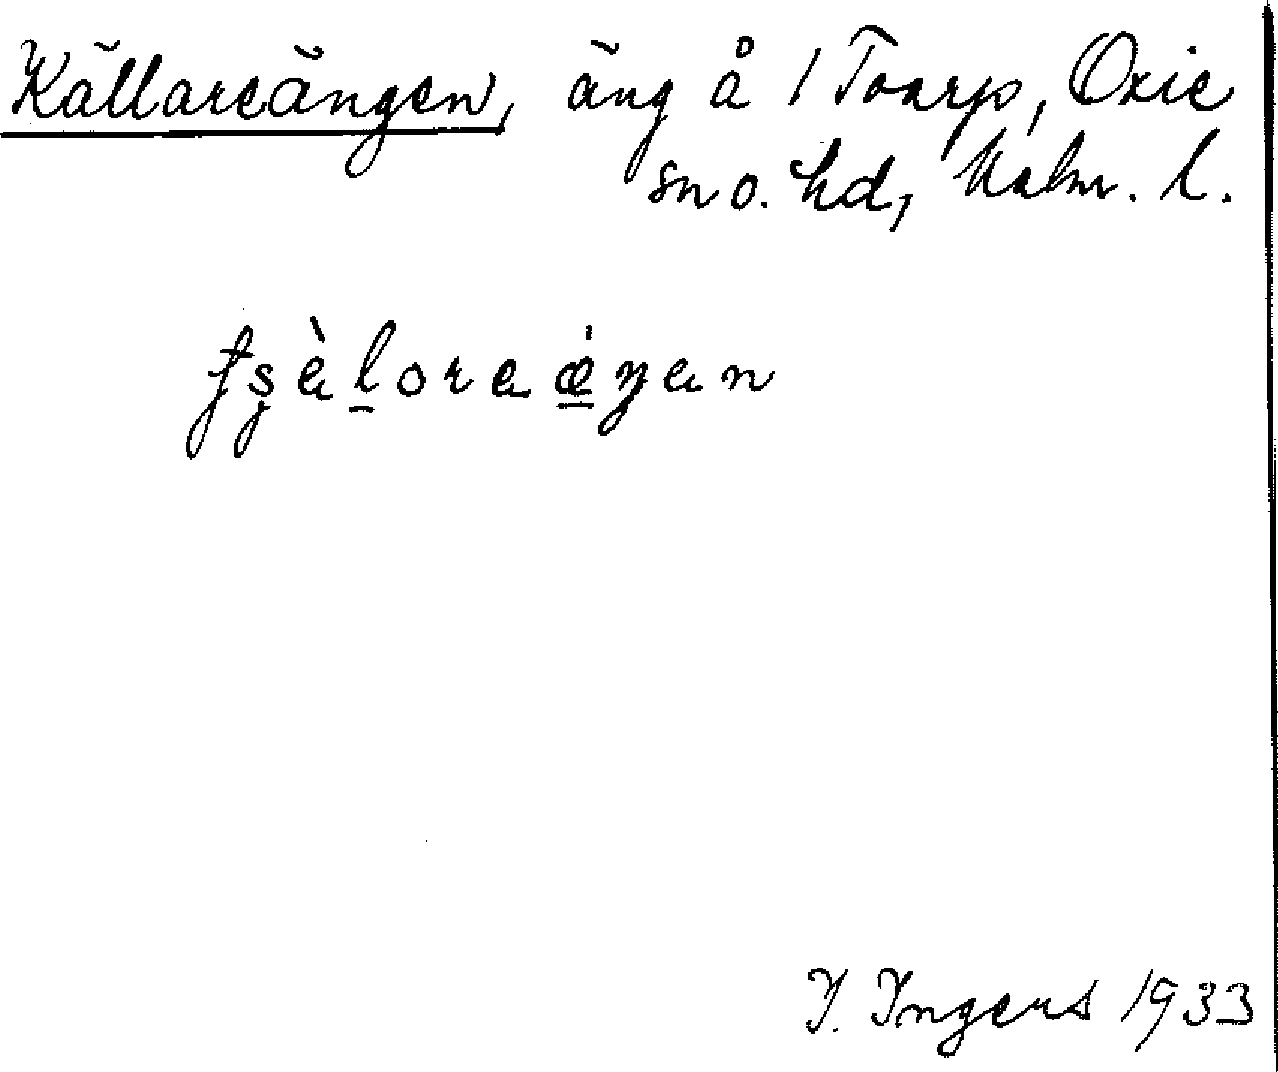 Källareängen, äng å 1 Toarp, Oxie
sn o. hd, Malm. l.
I. Ingers 1933